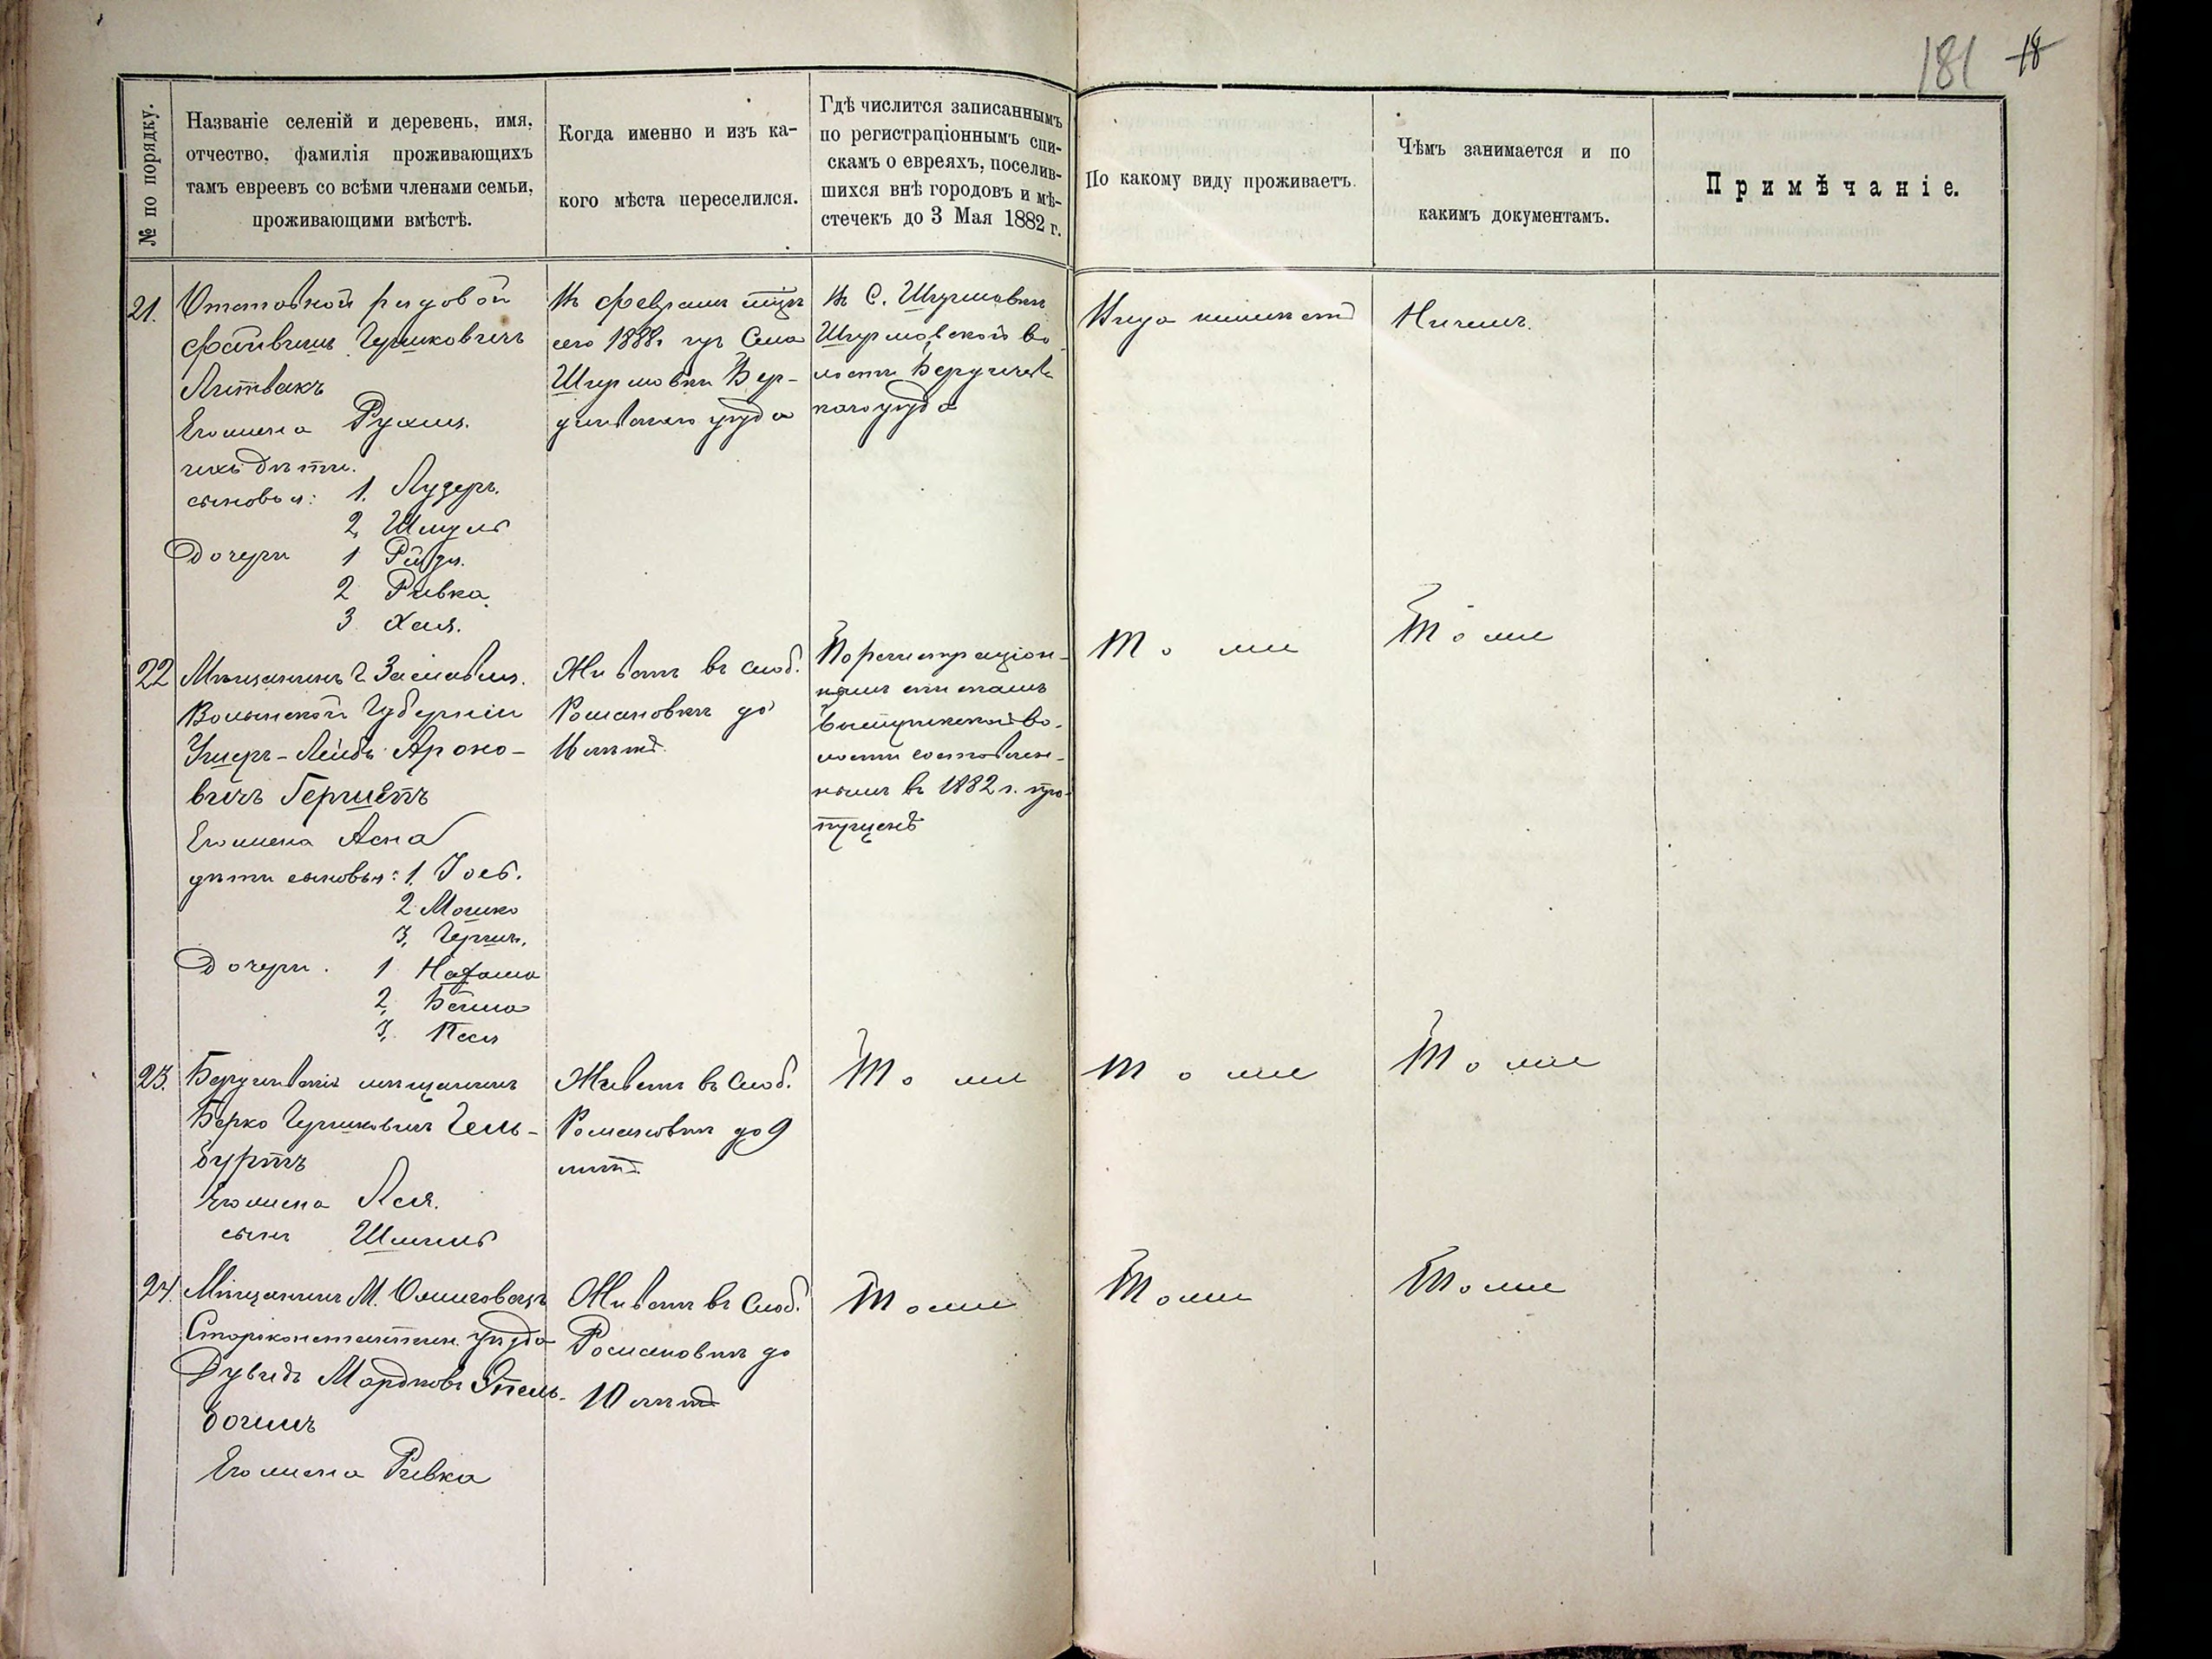 181 18
№ по порядку.
Названіе селеній и деревень, имя,
отчество, фамилія проживающихъ
тамъ евреевъ со всѣми членами семьи,
проживающими вмѣстѣ.
Когда именно и изъ ка-
кого мѣста переселился.
Гдѣ числится записаннымъ
по регистраціоннымъ спи-
скамъ о евреяхъ, поселив-
шихся внѣ городовъ и мѣ-
стечекъ до 3 Мая 1882 г.
По какому виду проживаетъ.
Чѣмъ занимается и по
какимъ документамъ.
Примѣчаніе.
21.
Отставной рядовой
Файвишъ Гершковичъ
Литвакъ
Его жена Рухля.
ихъ дѣти.
сыновья: 1. Лузеръ.
2, Шмуль
Дочери 1
2 Ривка
3 Хая.
Въ Февралѣ мѣся
сего 1888 г. изъ Села
Ширмовки Бер-
дичевскаго уѣзда
Въ С. Ширмовкѣ
Ширмовской во-
лости Бердичевс
каго уѣзда
Вида неимѣетъ
Ничемъ.
22
Мѣщанинъ г Заславля.
Волынской Губерніи
Ушеръ-Лейбъ Ароно-
вичъ Гершетъ
Его жена Асна
дѣти сыновья: 1, Іось.
2 Мошко
3, Гершъ.
Дочери. 1
2, Бейла
3, Песя
Живетъ въ слоб.
Романовкѣ до
16 лѣтъ.
По регистраціон-
нымъ спискамъ
волости составлен-
нымъ въ 1882 г. про-
пущенъ
То же
То же
23.
Бердичевскій мѣщанинъ
Берко Гершковичъ Гель-
буртъ
Его жена Лея.
сынъ Шмиль
Живетъ въ слоб.
Романовкѣ до 9
лѣтъ.
То же
То же
То же
24.
Мѣщанинъ М.
Староконстантин. уѣзда
Дувидъ Мордковъ Эпель-
боимъ
Его жена Ривка
Живетъ въ слоб.
Романовкѣ до
10 лѣтъ
То же
То же
То же